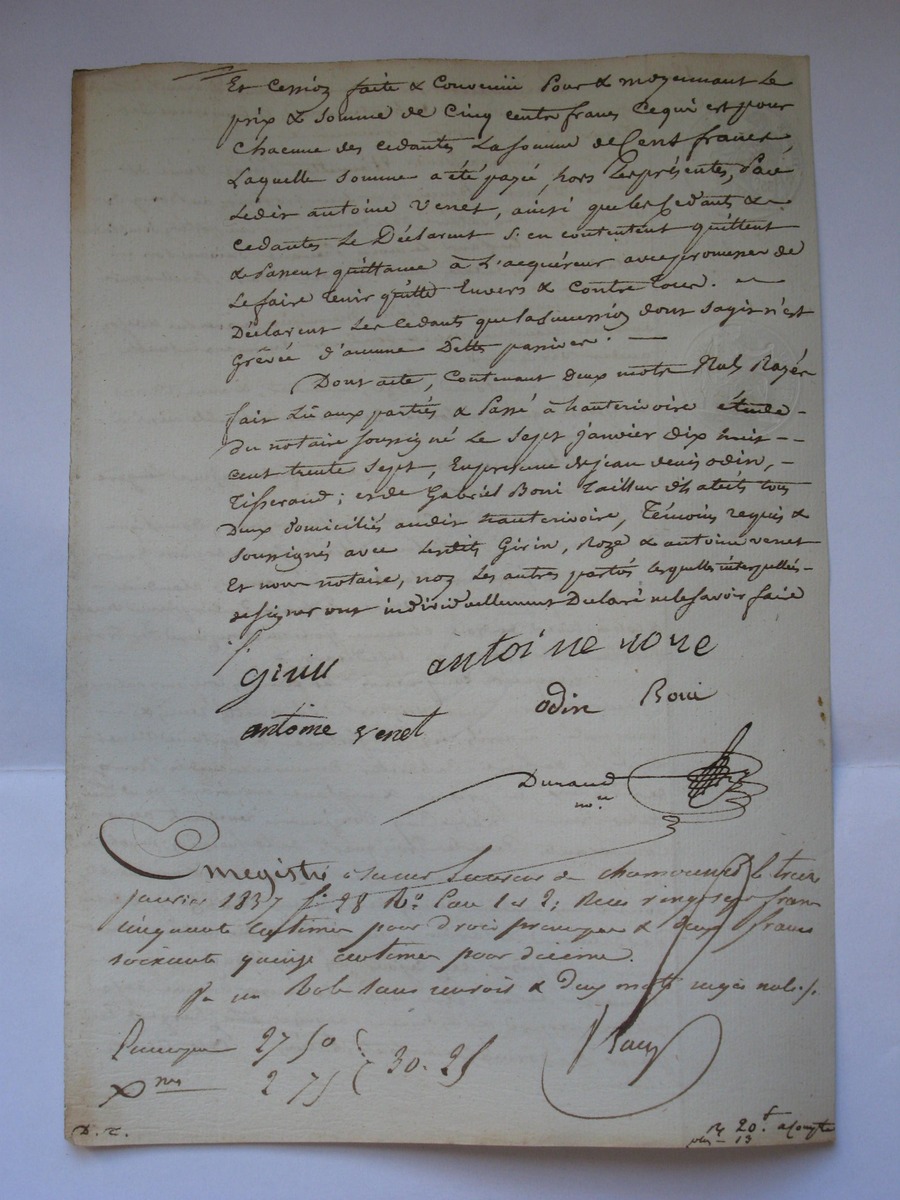 Et Cession faite & Convenue Pour & moyennant Le
prix & somme de Cinq cents francs Ce qui est pour
Chacune des cedantes La somme de Cent francs,
Laquelle somme a été payé, hors Les présentes, Par
Ledit antoine Venet, ainsi que les Cedants &
Cedantes Le Déclarent S'en contentent quittent
& Passent quittance à L'acquéreur avec promesse de
Le faire tenir quitte Envers & Contre Tous.
Déclarent Les Cedants que la Succession dont s'agit n'est
Grévée d'aucune Dette passive. —
Dont acte, Contenant deux mots Nuls Rayés
fait Lu aux parties & Passé à hauterivoire étude
Du notaire soussigné Le Sept janvier Dix huit
cent trente Sept, En présence de jean denis odin,
Tisserand; et de Gabriel Boni Tailleur d'habits tous
Deux domiciliés audit hauterivoire, Témoins requis &
Soussignés avec Lesdits Girin, Roze & antoine venet
Et nous notaire, non Les autres parties lesquelles interpellées
de signer ont individuellement Déclaré ne le savoir faire
girin antoine rove
antoine venet odin Boni
Durand
n.re
Enregistré à Saint Laurent de chamousset le treize
janvier 1837 f.º 28 R.º Case 1 et 2; Reçu vingt sept francs
cinquante centimes pour droit principal & deux francs
soixante quinze centimes pour dixieme.
en un Role sans renvois & deux mots rayés nuls.
Principal 27 50
X.mes 2 75 } 30. 25
D. T.
R 20.f acompte
plus – 13